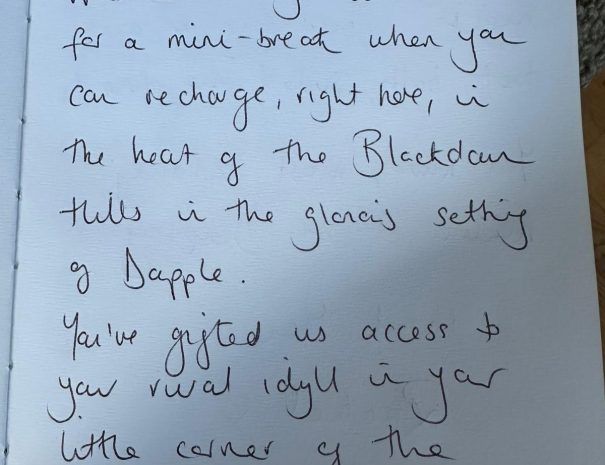 for a mini-break when you
can recharge, right here, in
the heart of the Blackdown
Hills in the glorious setting
of Dapple.
You've gifted us access to
your rural idyll in your
little corner of the